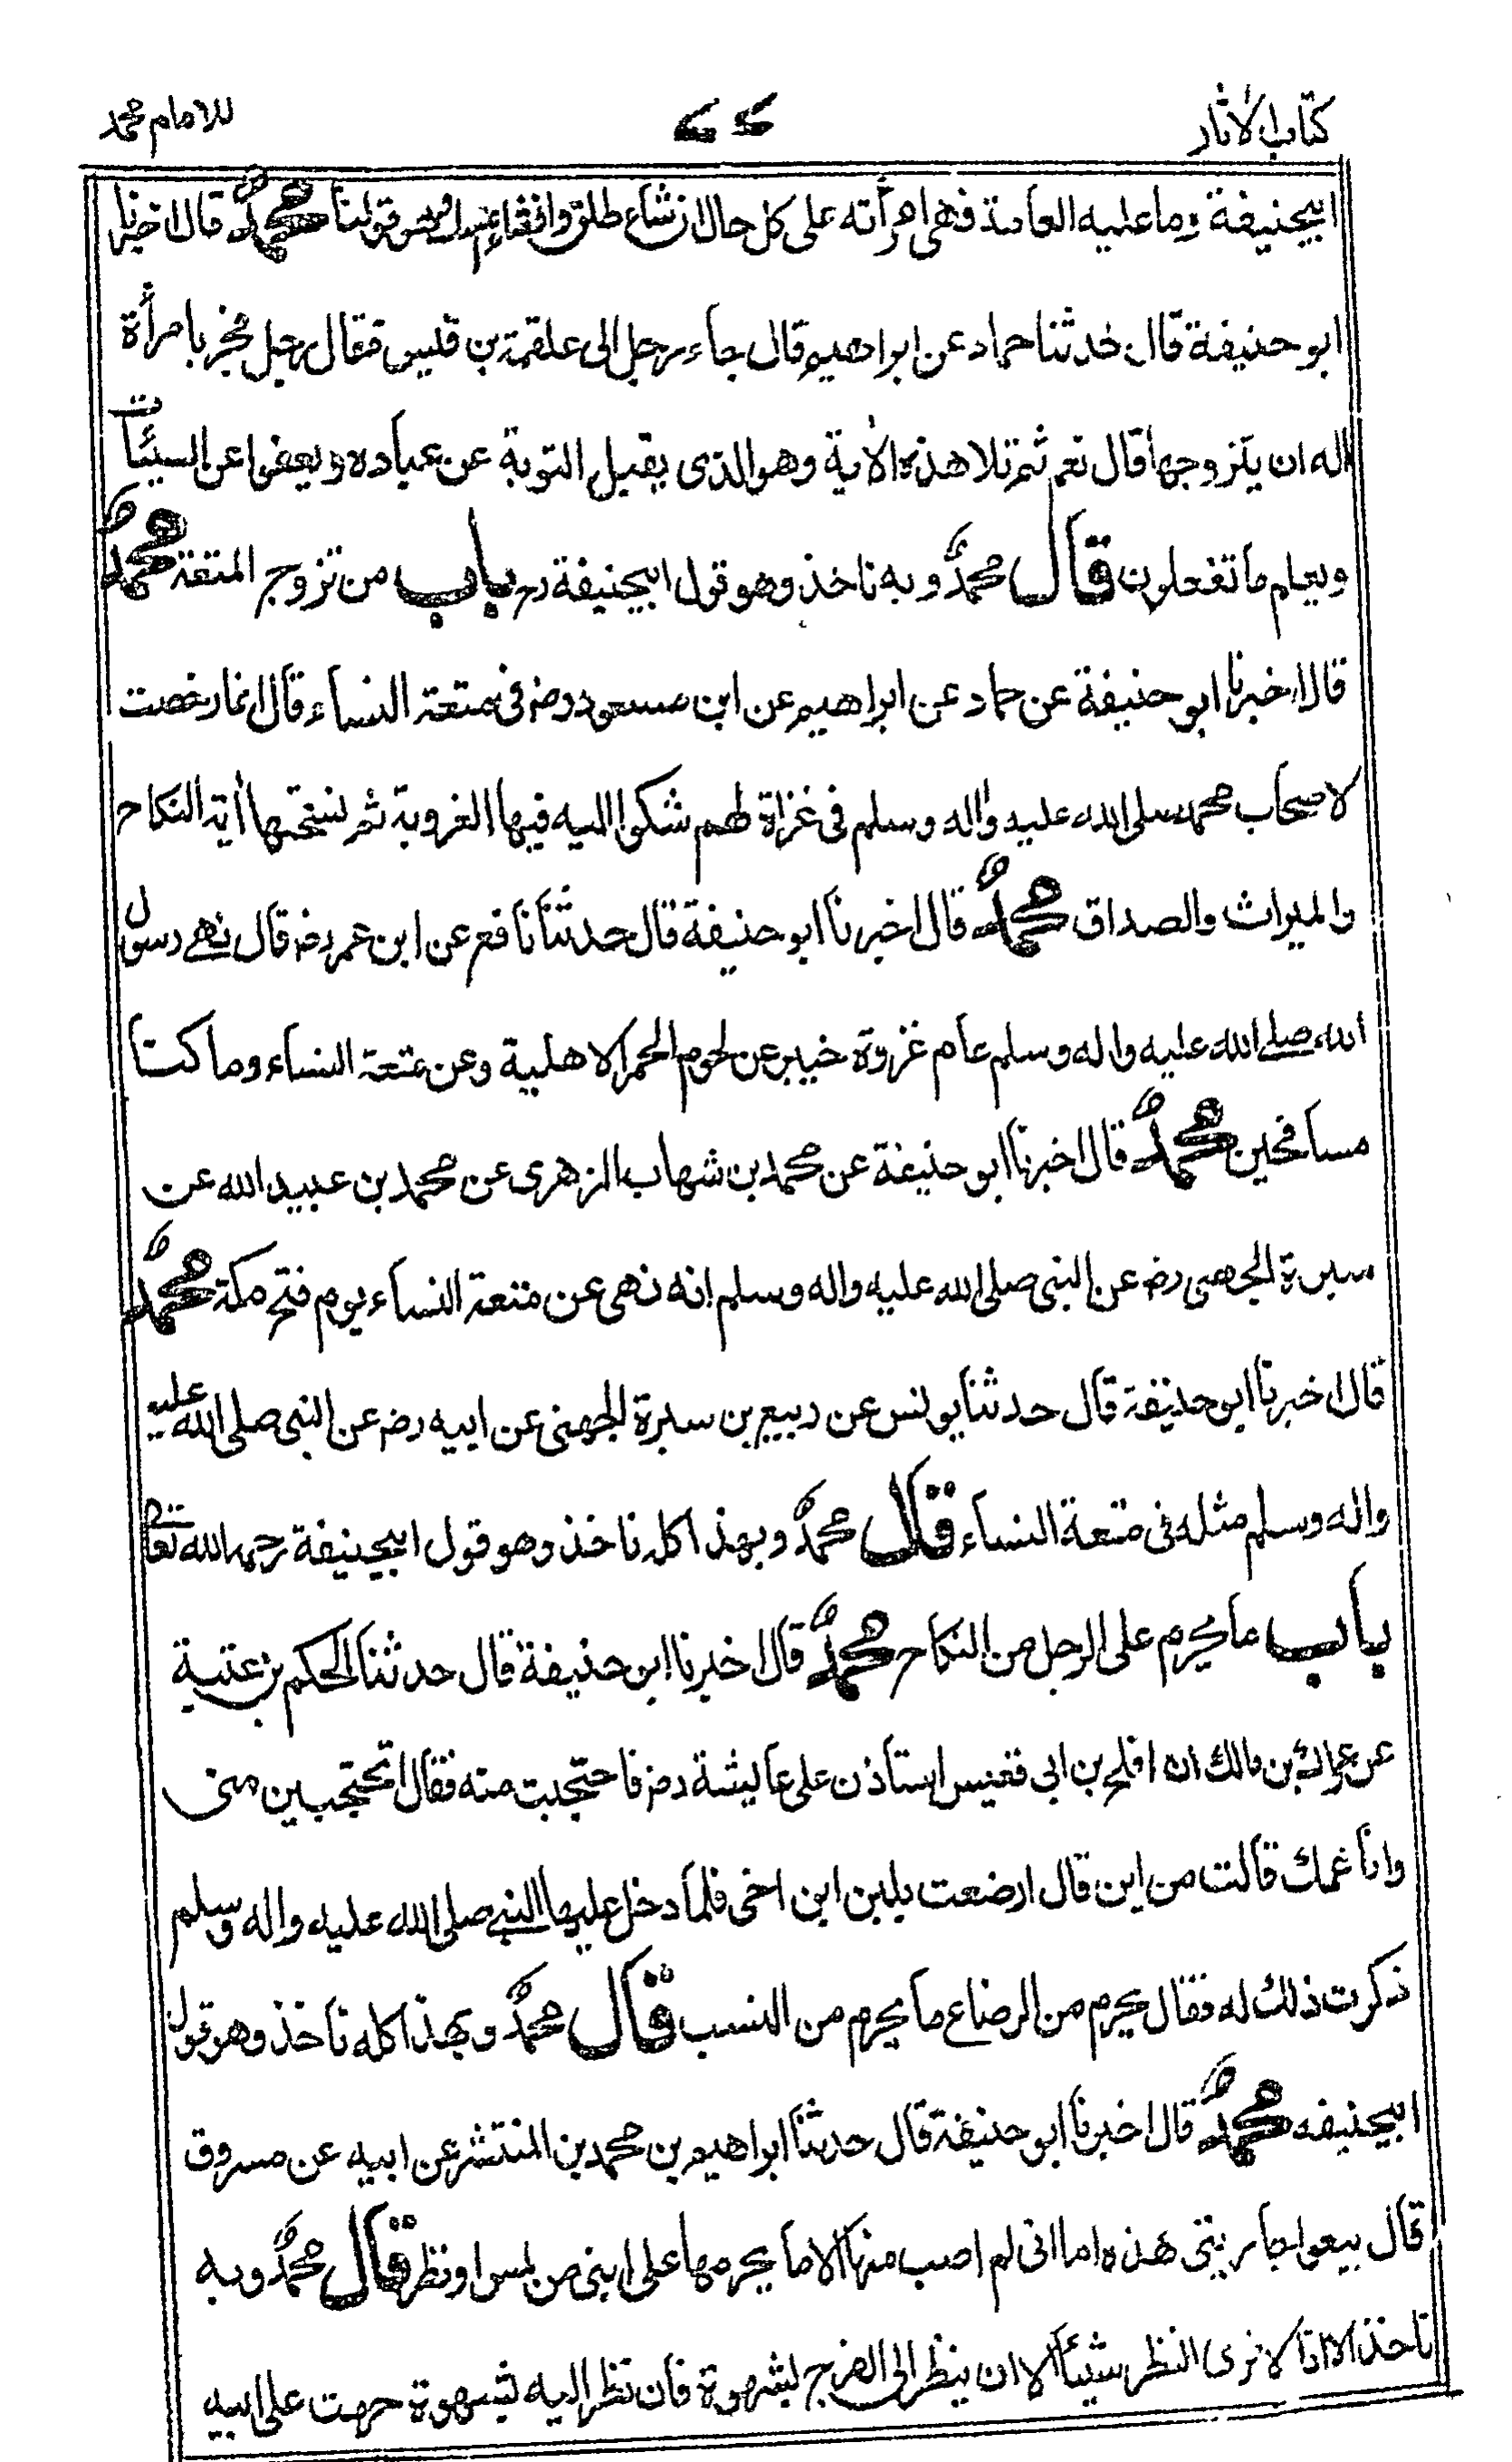 كتاب الاثار ٧٢ للامام محمد
ابيحنيفة وما عليه العامة فهى امرأته على كل حال ان شاء طلق وان شاء امسك وهو قولنا محمد قال اخبرنا
ابو حنيفة قال حدثنا حماد عن ابراهيم قال جاء رجل الى علقمة بن قيس فقال رجل فجر بامرأة
اله ان يتزوجها قال نعم ثم تلا هذه الاٰية وهو الذى يقبل التوبة عن عباده ويعفوا عن السيئات
ويعلم ما تفعلون قال محمد وبه ناخذ وهو قول ابيحنيفة رح باب من تزوج المتعة محمد
قال اخبرنا ابو حنيفة عن حماد عن ابراهيم عن ابن مسعود رض فى متعة النساء قال انما رخصت
لاصحاب محمد صلى الله عليه واٰله وسلم فى غزاة لهم شكوا اليه فيها العزوبة ثم نسختها اٰية النكاح
والميراث والصداق محمد قال اخبرنا ابو حنيفة قال حدثنا نافع عن ابن عمر رض قال نهى رسول
الله صلى الله عليه واله وسلم عام غزوة خيبر عن لحوم الحمر الاهلية وعن متعة النساء وما كنا
مسافحين محمد قال اخبرنا ابو حنيفة عن محمد بن شهاب الزهرى عن محمد بن عبيد الله عن
سبرة الجهنى رض عن النبى صلى الله عليه واله وسلم انه نهى عن متعة النساء يوم فتح مكة محمد
قال اخبرنا ابو حنيفة قال حدثنا يونس عن ربيع بن سبرة الجهنى عن ابيه رض عن النبى صلى الله عليه
واله وسلم مثله فى متعة النساء قال محمد وبهذا كله ناخذ وهو قول ابيحنيفة رحمه الله تعالى
باب ما يحرم على الرجل من النكاح محمد قال اخبرنا ابو حنيفة قال حدثنا الحكم بن عتيبة
عن عراك بن مالك ان افلح بن ابى قعيس استأذن على عايشة رض فاحتجبت منه فقال اتحتجبين منى
وانا عمك قالت من اين قال ارضعت بلبن ابن اخى فلما دخل عليها النبى صلى الله عليه واله وسلم
ذكرت ذلك له فقال يحرم من الرضاع ما يحرم من النسب قال محمد وبهذا كله ناخذ وهو قول
ابيحنيفه محمد قال اخبرنا ابو حنيفة قال حدثنا ابراهيم بن محمد بن المنتشر عن ابيه عن مسروق
قال بيعوا جاريتى هذه اما انى لم اصب منها الا ما يحرمها على ابنى من لمس او نظر قال محمد وبه
ناخذ الا انا لا نرى النظر شيئا الا ان ينظر الى الفرج لشهوة فان نظر اليه لشهوة حرمت على ابيه